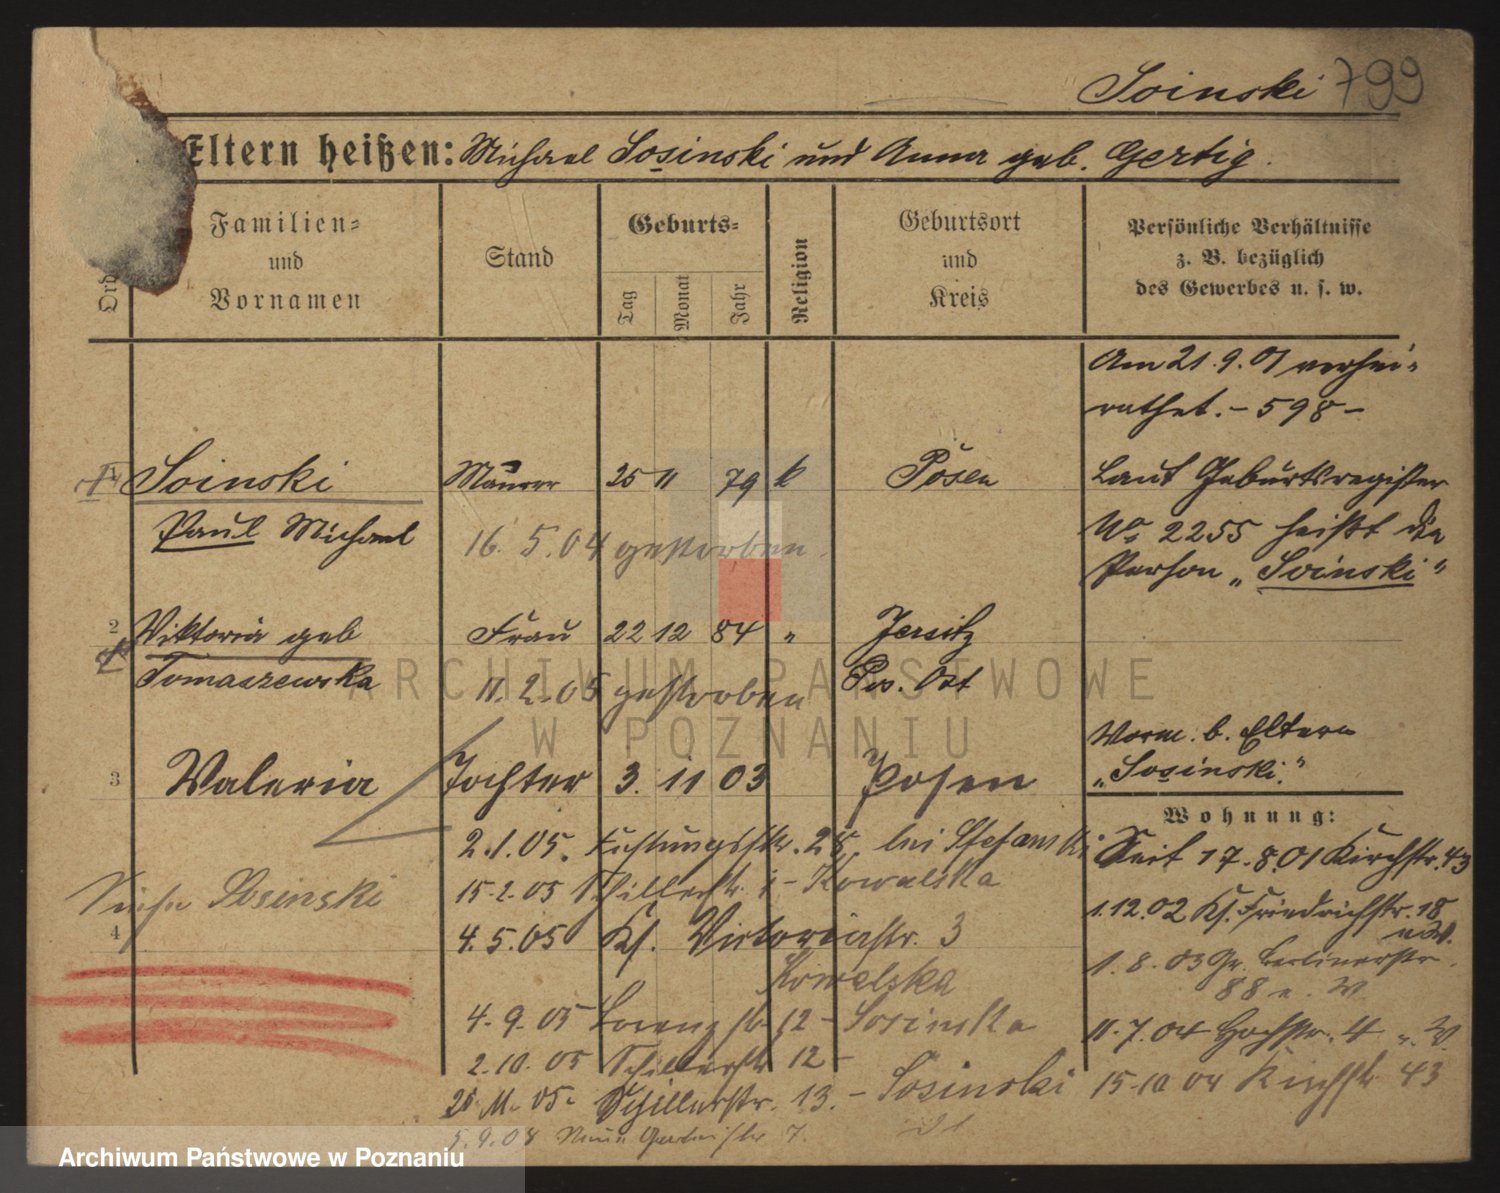 Soinski 799
Eltern heißen: Michael Sosinski und Anna geb. Gertig.
Ord
Familien-
und
Vornamen
Stand
Geburts-
Tag
Monat
Jahr
Religion
Geburtsort
und
Kreis
Persönliche Verhältnisse
z. B. bezüglich
des Gewerbes u. s. w.
Am 21.9.01 verhei-
rathet. - 598 -
1 Soinski Maurer 25 11 79 k Posen
Paul Michael
16. 5. 04 gestorben.
Laut Geburtsregister
No 2255 heißt die
Person „Soinski"
2 Viktoria geb Frau 22 12 84 " Jersitz
Tomaszewska Pos. Ost
11. 2. 05 gestorben
3 Valeria Tochter 3. 11 03 Posen
Vorm. b. Eltern
„Sosinski."
Wohnung:
Seit 17.8.01 Kirchstr. 43
1.12.02 Kl. Friedrichstr. 18
u. W.
1. 8. 03 Gr. Berlinerstr.
88 u. W.
11.7.04 Hochstr. 4 u. W.
15.10 04 Kirchstr 43
2.1.05. bei Stefanski
15.2.05 Kowalska
4. 5. 05 Kl. Victoriastr. 3
Kowalska
4. 9. 05 Lorenzstr 12 - Sosinska
2.10. 05 Schillerstr 12 -
Schillerstr. 13. - Sosinski
Siehe Sosinski
4
5.9.08 Neue Gartenstr 7.
ARCHIWUM PAŃSTWOWE
W POZNANIU
Archiwum Państwowe w Poznaniu